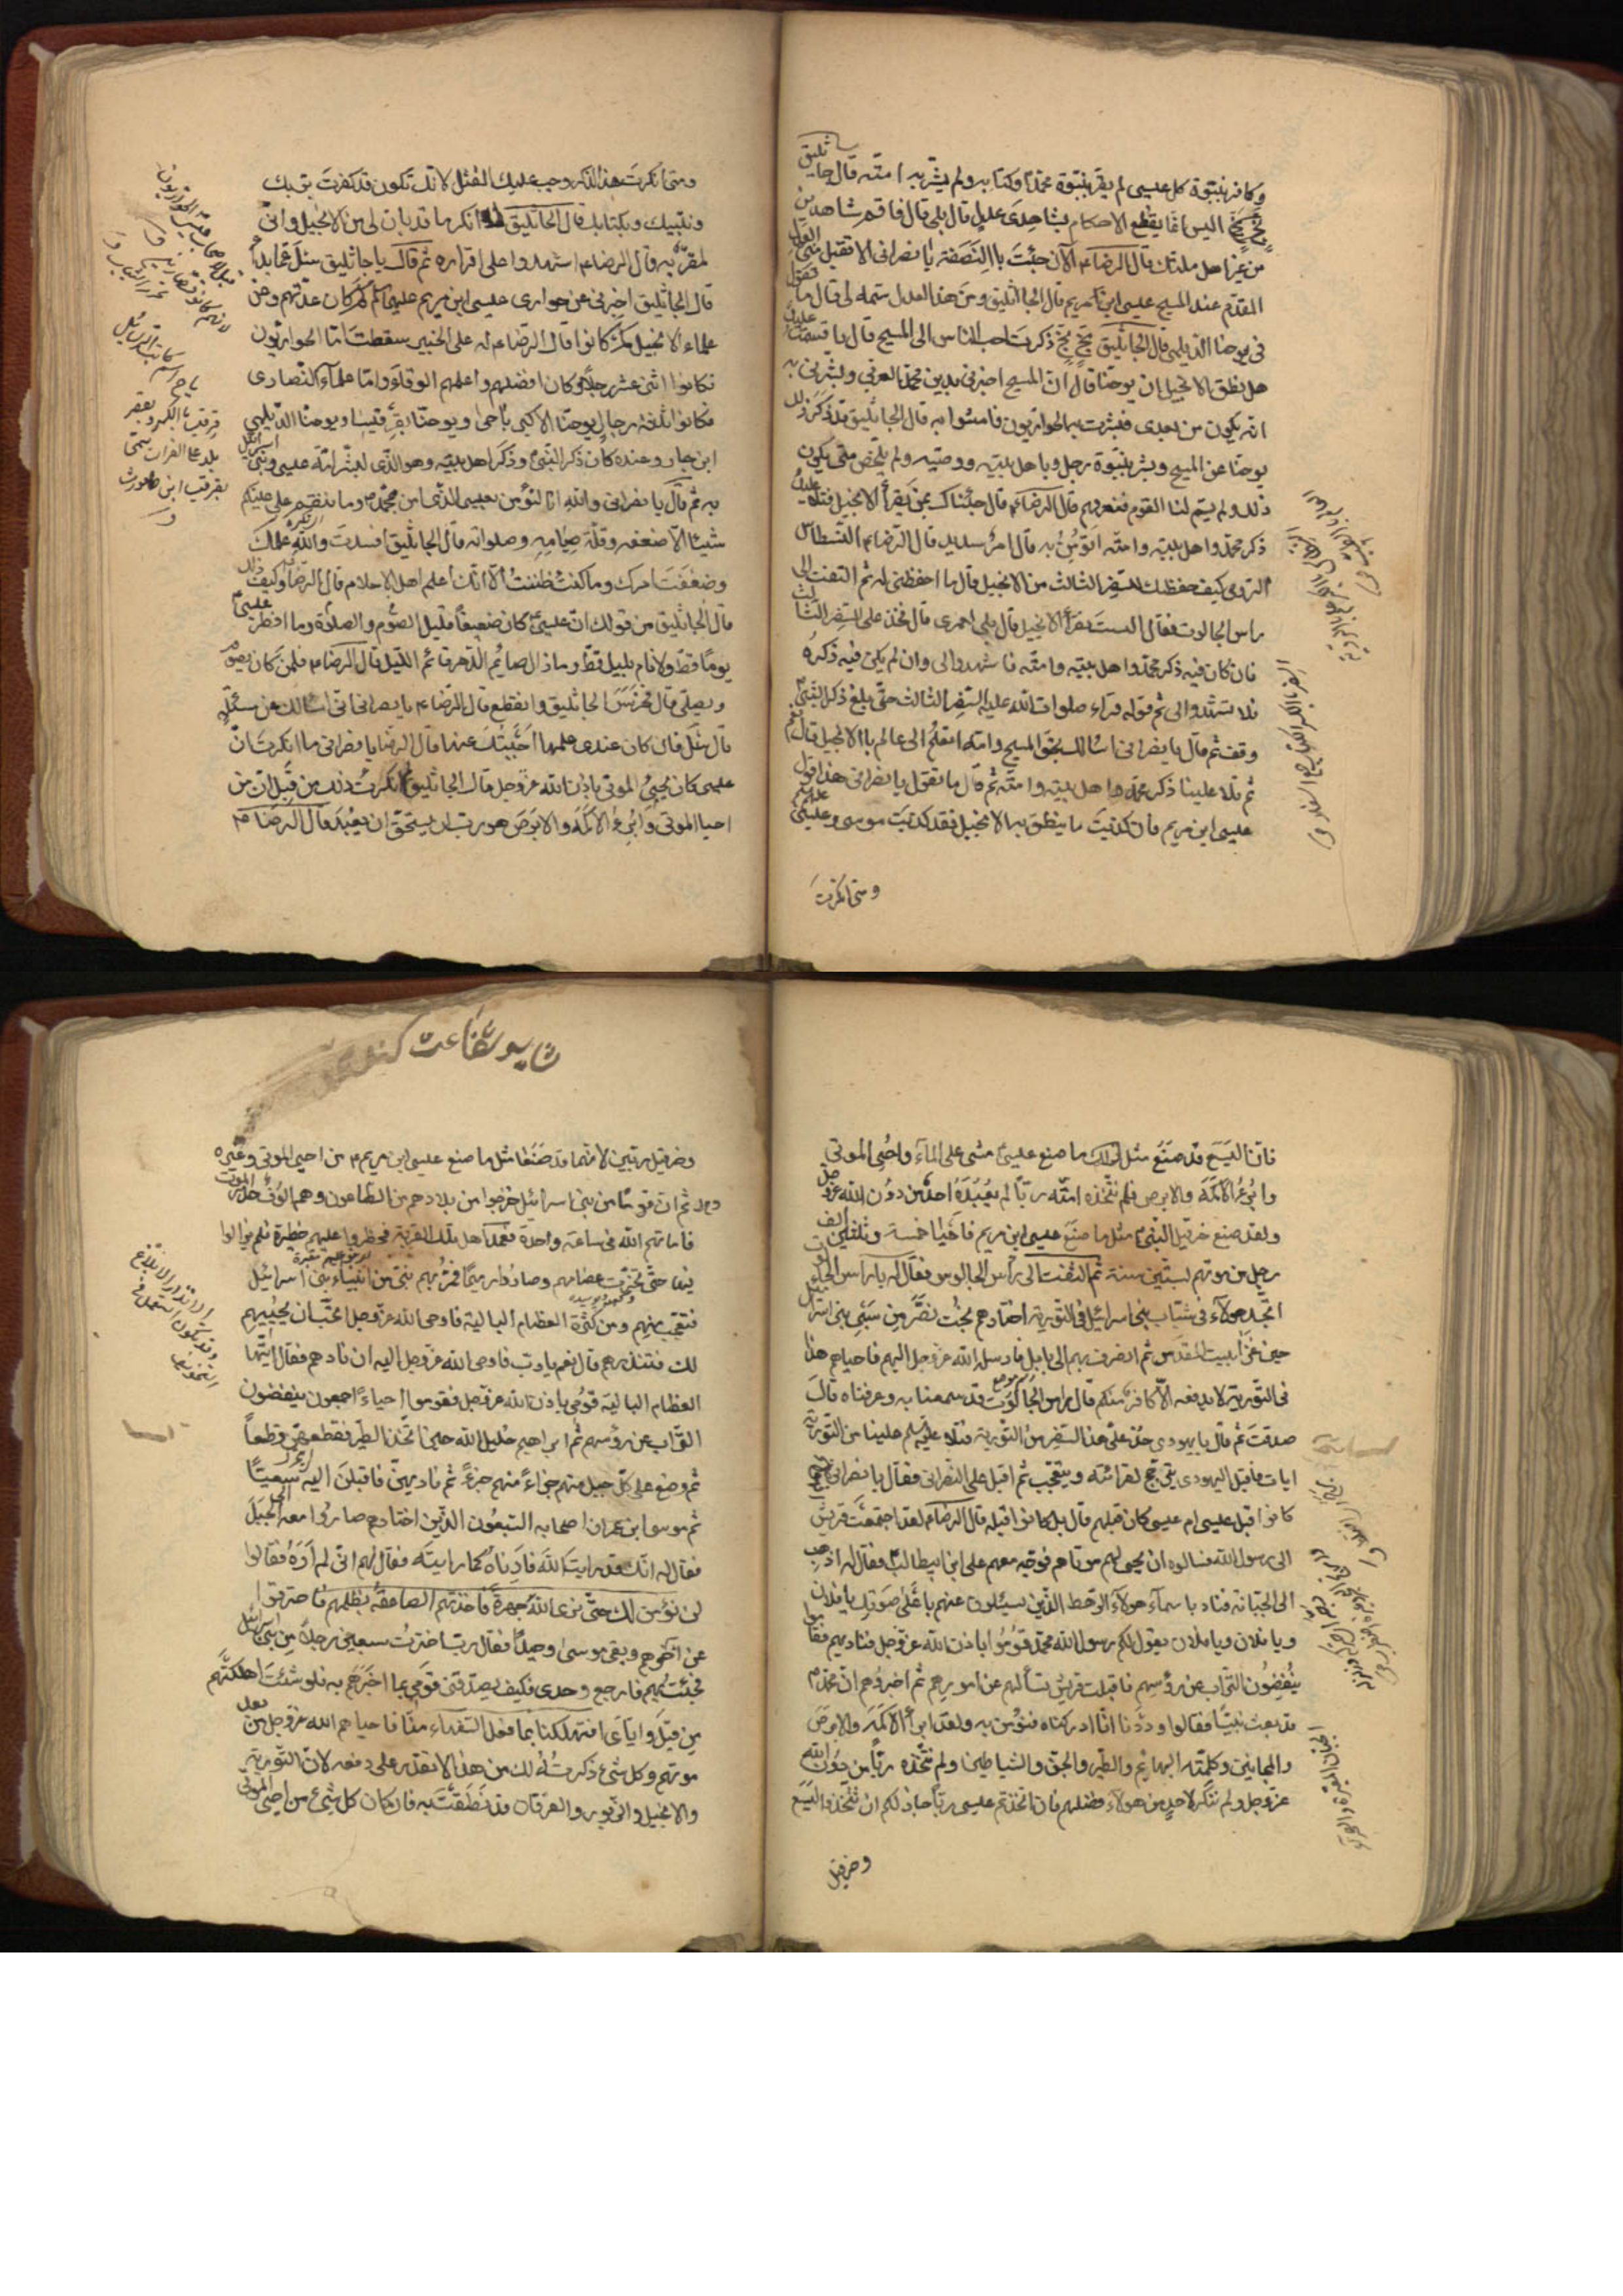 وكافر بنبوة كل عيسى لم يقر بنبوة محمد وكتابه ولم يبشر به امته قال جاثليق
اليس انما يقطع الاحكام بشاهدى عدل قال بلى قال فاقم شاهدين
من غير اهل ملتك قال الرضا ع الآن جئت باالنصفة يا نصرانى الا تقبل منى العدل
المقدم عند المسيح عيسى ابن مريم قال الجاثليق ومن هذا العدل سمه لى قال ما تقول
فى يوحنا الديلمى قال الجاثليق بخ بخ ذكرت احب الناس الى المسيح قال فاقسمت عليك
هل نطق الانجيل ان يوحنا قال ان المسيح اخبرنى بدين محمد العربى وبشرنى به
انه يكون من بعدى فبشرت به الحواريون فامنوا به قال الجاثليق قد ذكر ذلك
يوحنا عن المسيح وبشر بنبوة رجل وباهل بيته ووصيه ولم يلخص متى يكون
ذلك ولم يسم لنا القوم فنعرفهم قال الرضا ع قال جئناك بمن يقرأ الانجيل فتلا عليك
ذكر محمد واهل بيته وامته اتؤمن به قال امر سديد قال الرضا ع النسطاس
الرومى كيف حفظك للسفر الثالث من الانجيل قال ما احفظنى له ثم التفت الى
راس الجالوت فقال الست تقرأ الانجيل قال بلى لعمرى قال فخذ على السفر الثالث
فان كان فيه ذكر محمد واهل بيته وامته فاشهدوا لى وان لم يكن فيه ذكره
فلا تشهدوا لى ثم قوله قراء صلوات الله عليه السفر الثالث حتى بلغ ذكر النبى
وقف ثم قال يا نصرانى اسالك بحق المسيح وامه اتعلم انى عالم باالانجيل قال نعم
ثم تلا علينا ذكر محمد واهل بيته وامته ثم قال ما تقول يا نصرانى هذا قول
عيسى ابن مريم فان كذبت ما ينطق به الانجيل فقد كذبت موسى وعيسى
ومتى انكرت
ومتى انكرت هذا الذكر وجب عليك القتل لانك تكون قد كفرت بربك
ونبيك وبكتابك قال الجاثليق لا انكر ما قد بان لى من الانجيل وانى
لمقر به قال الرضا ع اشهدوا على اقراره ثم قال يا جاثليق سل عما بدا
قال الجاثليق اخبرنى عن حوارى عيسى ابن مريم كم كان عدتهم وعن
علماء الانجيل كم كانوا قال الرضا ع له على الخبير سقطت اما الحواريون
فكانوا اثنى عشر رجلا وكان افضلهم واعلمهم الوقا واما علماء النصارى
فكانوا ثلثة رجال يوحنا الاكبر باحى ويوحنا بقرقيسا ويوحنا الديلمى
وعنده كان ذكر النبى وذكر اهل بيته وهو الذى بشر امة عيسى وبنى اسرائيل
به ثم قال يا نصرانى والله انا لنؤمن بعيسى الذى امن بمحمد وما ننقم على عيسيكم
شيئا الا ضعفه وقلة صيامه وصلواته قال الجاثليق افسدت والله علمك
وضعفت امرك وما كنت ظننت الا انك اعلم اهل الاسلام قال الرضا وكيف ذلك
قال الجاثليق من قولك ان عيسى كان ضعيفا قليل الصوم والصلوة وما افطر عيسى
يوما قط ولا نام بليل قط وما زال صائم الدهر قائم الليل قال الرضا ع فلمن كان يصوم
ويصلى قال فخرس الجاثليق وانقطع قال الرضا ع يا نصرانى انى اسالك عن مسئلة
قال سل فان كان عندى علمها اجبتك عنها قال الرضا يا نصرانى ما انكرت ان
عيسى كان يحيى الموتى باذن الله عز وجل قال الجاثليق انكرت ذلك من قبل ان من
احيا الموتى وابرء الاكمه والابرص هو رب ان يستحق ان يعبد قال الرضا ع
فان اليسع قد صنع مثل ما صنع عيسى مشى على الماء واحيى الموتى
وابرء الاكمه والابرص فلم تتخذه امته ربا لم يعبده احد من دون الله عز وجل
ولقد صنع حزقيل النبى مثل ما صنع عيسى ابن مريم فاحيا خمسة وثلثين الف
رجل من بعد موتهم بستين سنة ثم التفت الى راس الجالوت فقال له يا راس الجالوت
اتجد هولاء فى شباب بنى اسرائيل فى التورية اختارهم بخت نصر من سبى بنى اسرائيل
حين غزا بيت المقدس ثم انصرف بهم الى بابل فارسله الله عز وجل اليهم فاحياهم هذا
فى التورية لا يدفعه الا كافر منكم قال راس الجالوت قد سمعنا به وعرفناه قال
صدقت ثم قال يا يهودى خذ على هذا السفر من التورية فتلا عليه السلم علينا من التورية
ايات فاقبل اليهودى يترجج لقرائته ويتعجب ثم اقبل على النصرانى فقال يا نصرانى
كانوا قبل عيسى ام عيسى كان قبلهم قال بل كانوا قبله قال الرضا ع لقد اجتمعت قريش
الى رسول الله فسالوه ان يحيى لهم موتاهم فوجه معهم على ابن ابيطالب فقال له اذهب
الى الجبانة فناد باسماء هولاء الرهط الذين يسئلون عنهم باعلى صوتك يا فلان
ويا فلان ويا فلان يقول لكم رسول الله محمد قوموا باذن الله عز وجل فناديهم فقاموا
ينفضون التراب عن رؤسهم فاقبلت قريش تسألهم عن امورهم ثم اخبروهم ان محمدا
قد بعث نبيا فقالوا وددنا انا ادركناه فنؤمن به ولقد ابرأ الاكمه والابرص
والمجانين وكلمته البهائم والطير والجن والشياطين ولم نتخذه ربا من دون الله
عز وجل ولم ننكر لاحد من هولاء فضلهم فان اتخذتم عيسى ربا جاز لكم ان تتخذوا اليسع
وحزقيل
شايد شفاعت
وحزقيل ربين لانهما قد صنعا مثل ما صنع عيسى ابن مريم من احيى الموتى وغيره
ثم ان قوما من بنى اسرائيل خرجوا من بلادهم من الطاعون وهم الوف حذر الموت
فاماتهم الله فى ساعة واحدة فعمد اهل تلك القرية فحظروا عليهم حظيرة فلم يزالوا
فيها حتى نخرت عظامهم وصاروا رميما فمر بهم نبى من انبياء بنى اسرائيل
فتعجب منهم ومن كثرة العظام البالية فاوحى الله عز وجل اتحب ان يحييهم
لك فتنذرهم قال نعم يا رب فاوحى الله عز وجل اليه ان نادهم فقال ايتها
العظام البالية قومى باذن الله عز وجل فقوموا احياء اجمعون ينفضون
التراب عن رؤسهم ثم ابراهيم خليل الله حين اتخذ الطير فقطعهن قطعا
ثم وضع على كل جبل منهم جزاء منهم جزء ثم ناديهن فاقبلن اليه سعيا
ثم موسى ابن عمران اصحابه السبعون الذين اختارهم صاروا معه الى الجبل
فقال له انك قد رايت الله فارناه كما رايته فقال لهم انى لم اره فقالوا
لن نؤمن لك حتى نرى الله جهرة فاخذتهم الصاعقة بظلمهم فاحترقوا
عن اخرهم وبقى موسى وحيدا فقال رب اخترت سبعين رجلا من بنى اسرائيل
فجئت بهم فارجع وحدى فكيف يصدقنى قومى بما اخبرهم به فلو شئت اهلكتهم
من قبل واياى اتهلكنا بما فعل السفهاء منا فاحياهم الله عز وجل من بعد
موتهم وكل شئ ذكرته لك من هذا لا تقدر على دفعه لان التورية
والانجيل والزبور والفرقان قد نطقت به فان كان كل شئ من احيى الموتى